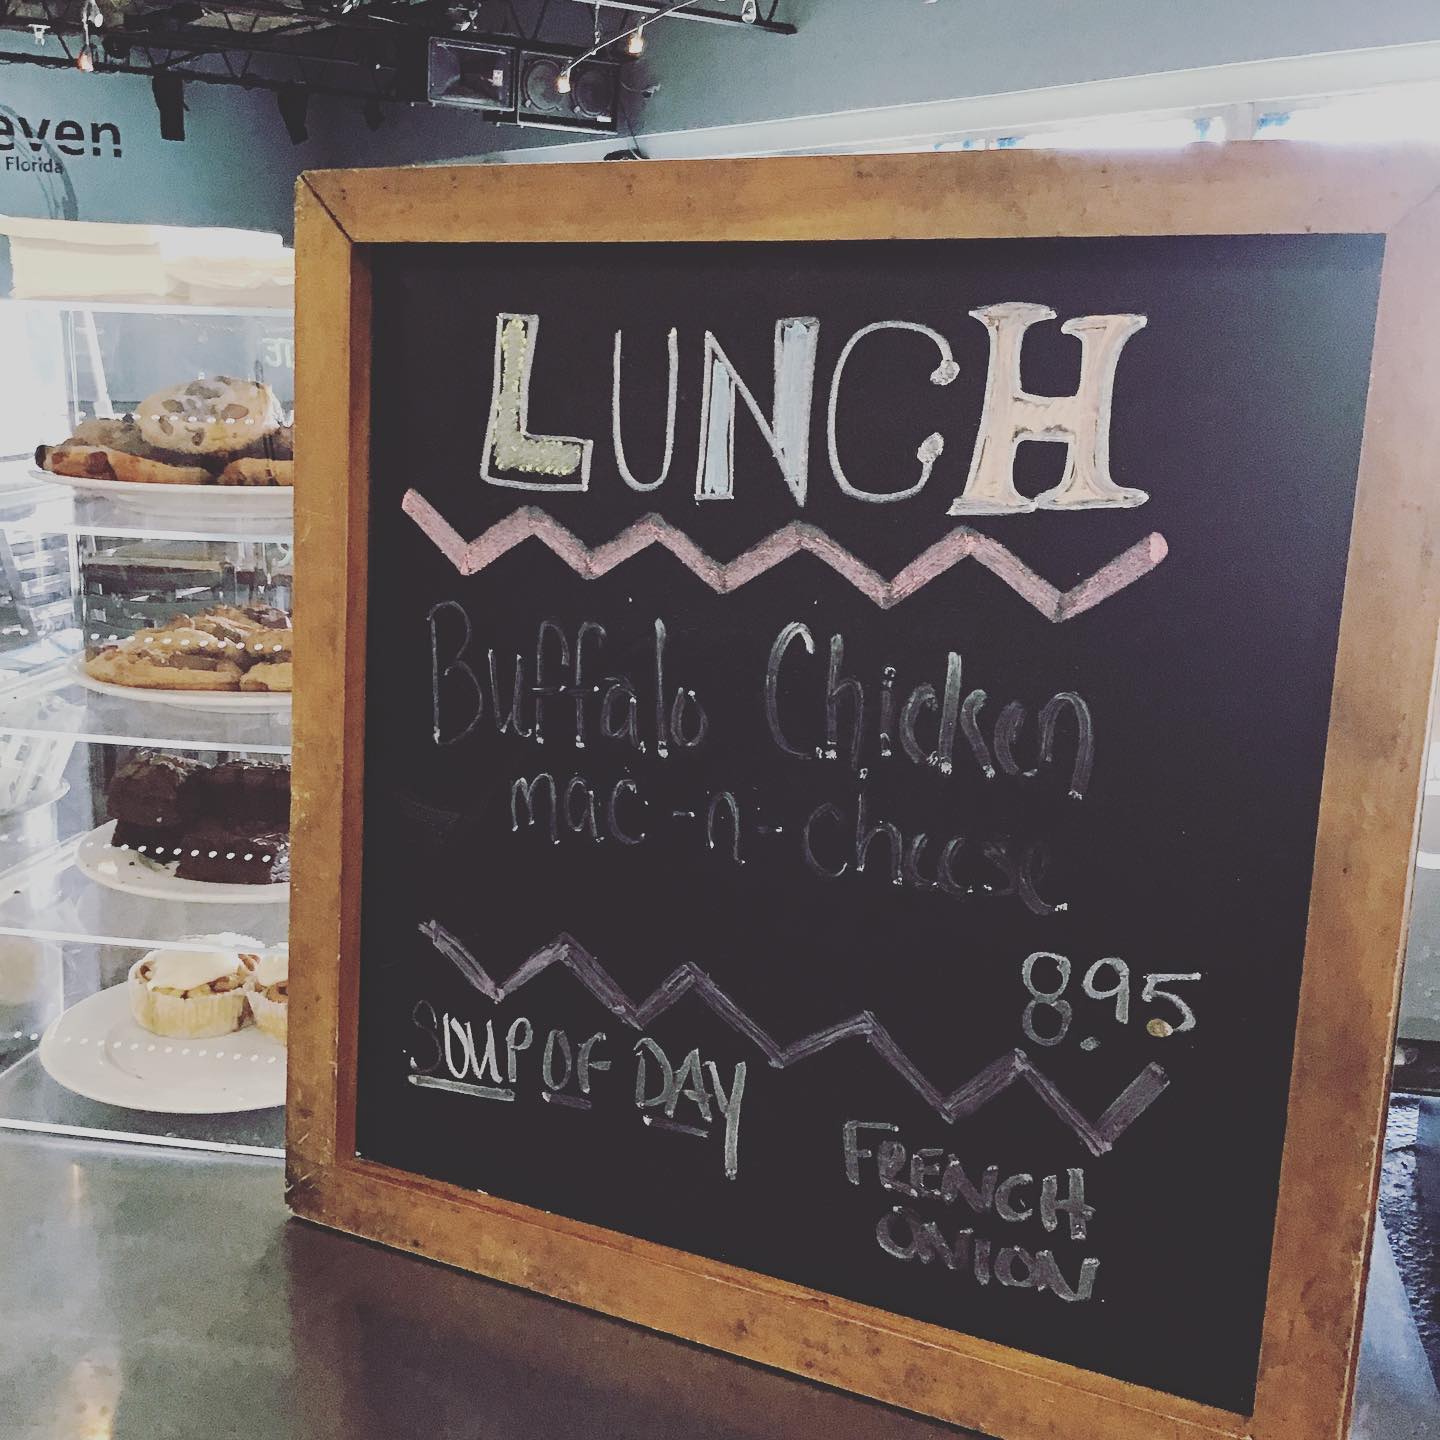 even
Florida
LUNCH
Buffalo Chicken
mac-n-cheese
8.95
SOUP OF DAY
FRENCH
ONION